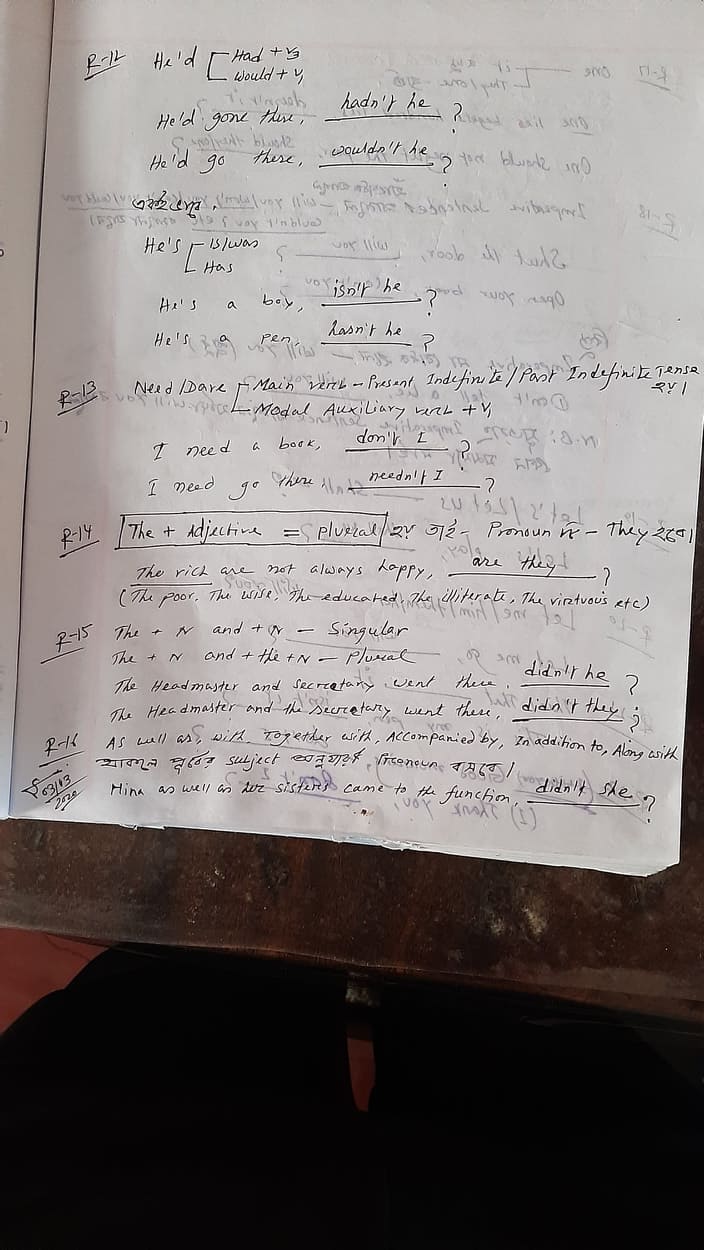 R-12 He'd [Had + V3
Would + V1
He'd gone there, hadn't he ?
He'd go there, wouldn't he ?
একইভাবে,
He's [Is/was
Has
He's a boy, isn't he ?
He's a pen, hasn't he ?
R-13 Need/Dare [Main verb - Present Indefinite/Past Indefinite Tense হয়।
Modal Auxiliary verb + V1
I need a book, don't I ?
I need go there, needn't I ?
R-14 The + Adjective = plural হয় তাই- Pronoun টি - They হবে।
The rich are not always happy, are they ?
(The poor, The wise, The educated, The illiterate, The virtuous etc)
R-15 The + N and + N - Singular
The + N and + the + N - Plural
The Headmaster and Secretary went there, didn't he ?
The Headmaster and the Secretary went there, didn't they ?
R-16 As well as, with, Together with, Accompanied by, In addition to, Along with
থাকলে পূর্বের subject অনুযায়ী Pronoun বসবে।
Mina as well as her sisters came to the function, didn't she ?
03/03
2020